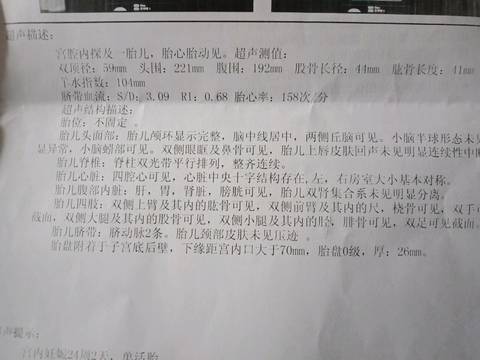 超声描述:
宫腔内探及一胎儿，胎心胎动见。超声测值:
双顶径: 59mm 头围: 221mm 腹围: 192mm 股骨长径: 44mm 肱骨长度: 41mm
羊水指数: 104mm
脐带血流: S/D: 3.09 RI: 0.68 胎心率: 158次/分
超声结构描述:
胎位: 不固定 。
胎儿头面部: 胎儿颅环显示完整，脑中线居中，两侧丘脑可见。小脑半球形态未见
显异常，小脑蚓部可见。双侧眼眶及鼻骨可见，胎儿上唇皮肤回声未见明显连续性中断
胎儿脊椎: 脊柱双光带平行排列，整齐连续。
胎儿心脏: 四腔心可见，心脏中央十字结构存在,左，右房室大小基本对称。
胎儿腹部内脏: 肝，胃，肾脏，膀胱可见，胎儿双肾集合系未见明显分离。
胎儿四肢: 双侧上臂及其内的肱骨可见，双侧前臂及其内的尺，桡骨可见，双手可
截面，双侧大腿及其内的股骨可见，双侧小腿及其内的胫，腓骨可见，双足可见截面。
胎儿脐带: 脐动脉2条。胎儿颈部皮肤未见压迹 。
胎盘附着于子宫底后壁，下缘距宫内口大于70mm，胎盘0级，厚: 26mm。
声提示:
宫内妊娠24周2天，单活胎